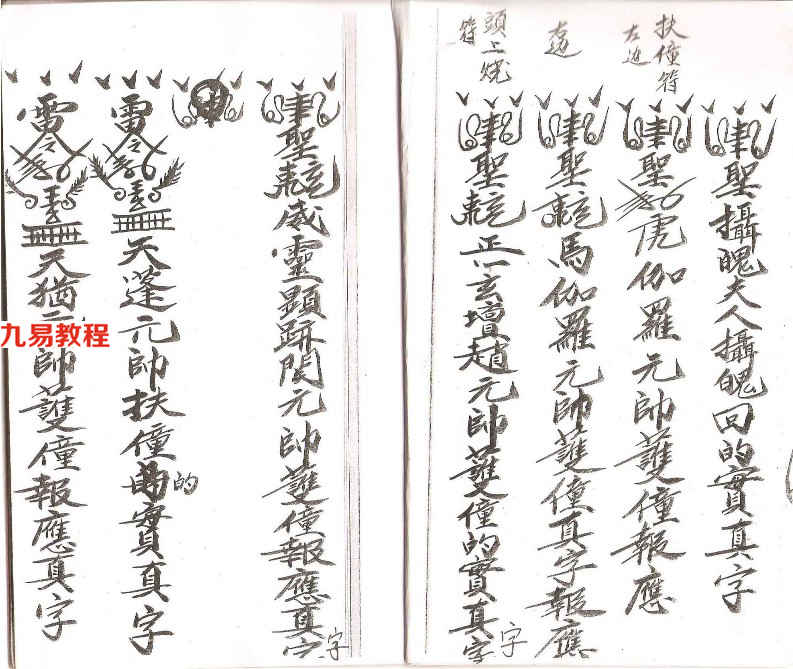 聖攝魄夫人攝魄回的實真字
扶僮符
左边
聖虎伽羅元帥護僮報應
右边
聖馬伽羅元帥護僮真字報應
頭上燒符
聖正一玄壇趙元帥護僮的實真字
聖威靈顯跡関元帥護僮報應真字
天蓬元帥扶僮的實真字
天猶元帥護僮報應真字
九易教程